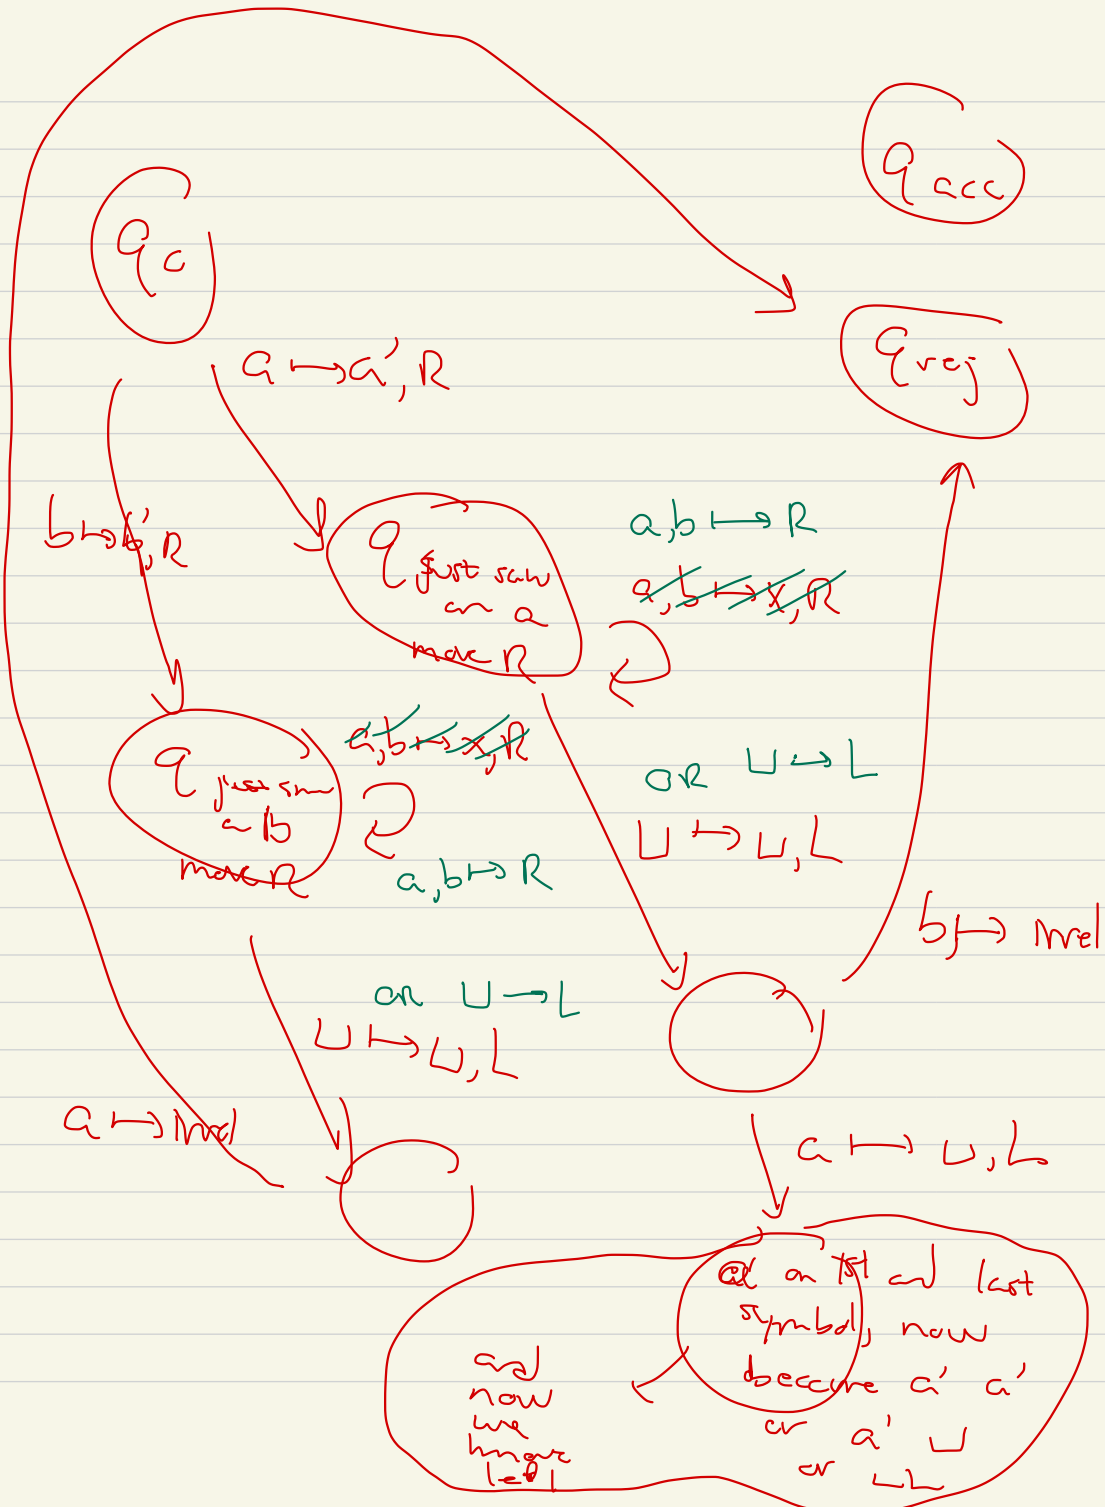 q acc
q c
q rej
a ↦ a', R
b ↦ b', R
q just saw
an a
move R
a,b ↦ R
a,b ↦ x, R
q just saw
a b
move R
a,b ↦ x, R
a,b ↦ R
OR ⊔ ↦ L
⊔ ↦ ⊔, L
b ↦
or ⊔ → L
⊔ ↦ ⊔, L
a ↦
a ↦ ⊔, L
a on 1st and last
symbol, now
became a' a'
or a' ⊔
or ⊔⊔
and
now
we
move
left